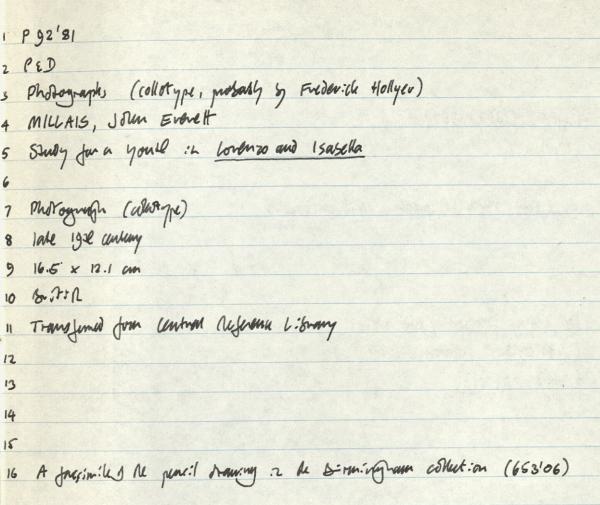 1 P 92'81
2 P&D
3 Photographs (collotype, probably by Frederick Hollyer)
4 MILLAIS, John Everett
5 Study for a youth in Lorenzo and Isabella
6
7 Photograph (collotype)
8 late 19th century
9 16.5 x 12.1 cm
10 British
11 Transferred from Central Reference Library
12
13
14
15
16 A facsimile of the pencil drawing in the Birmingham collection (653'06)